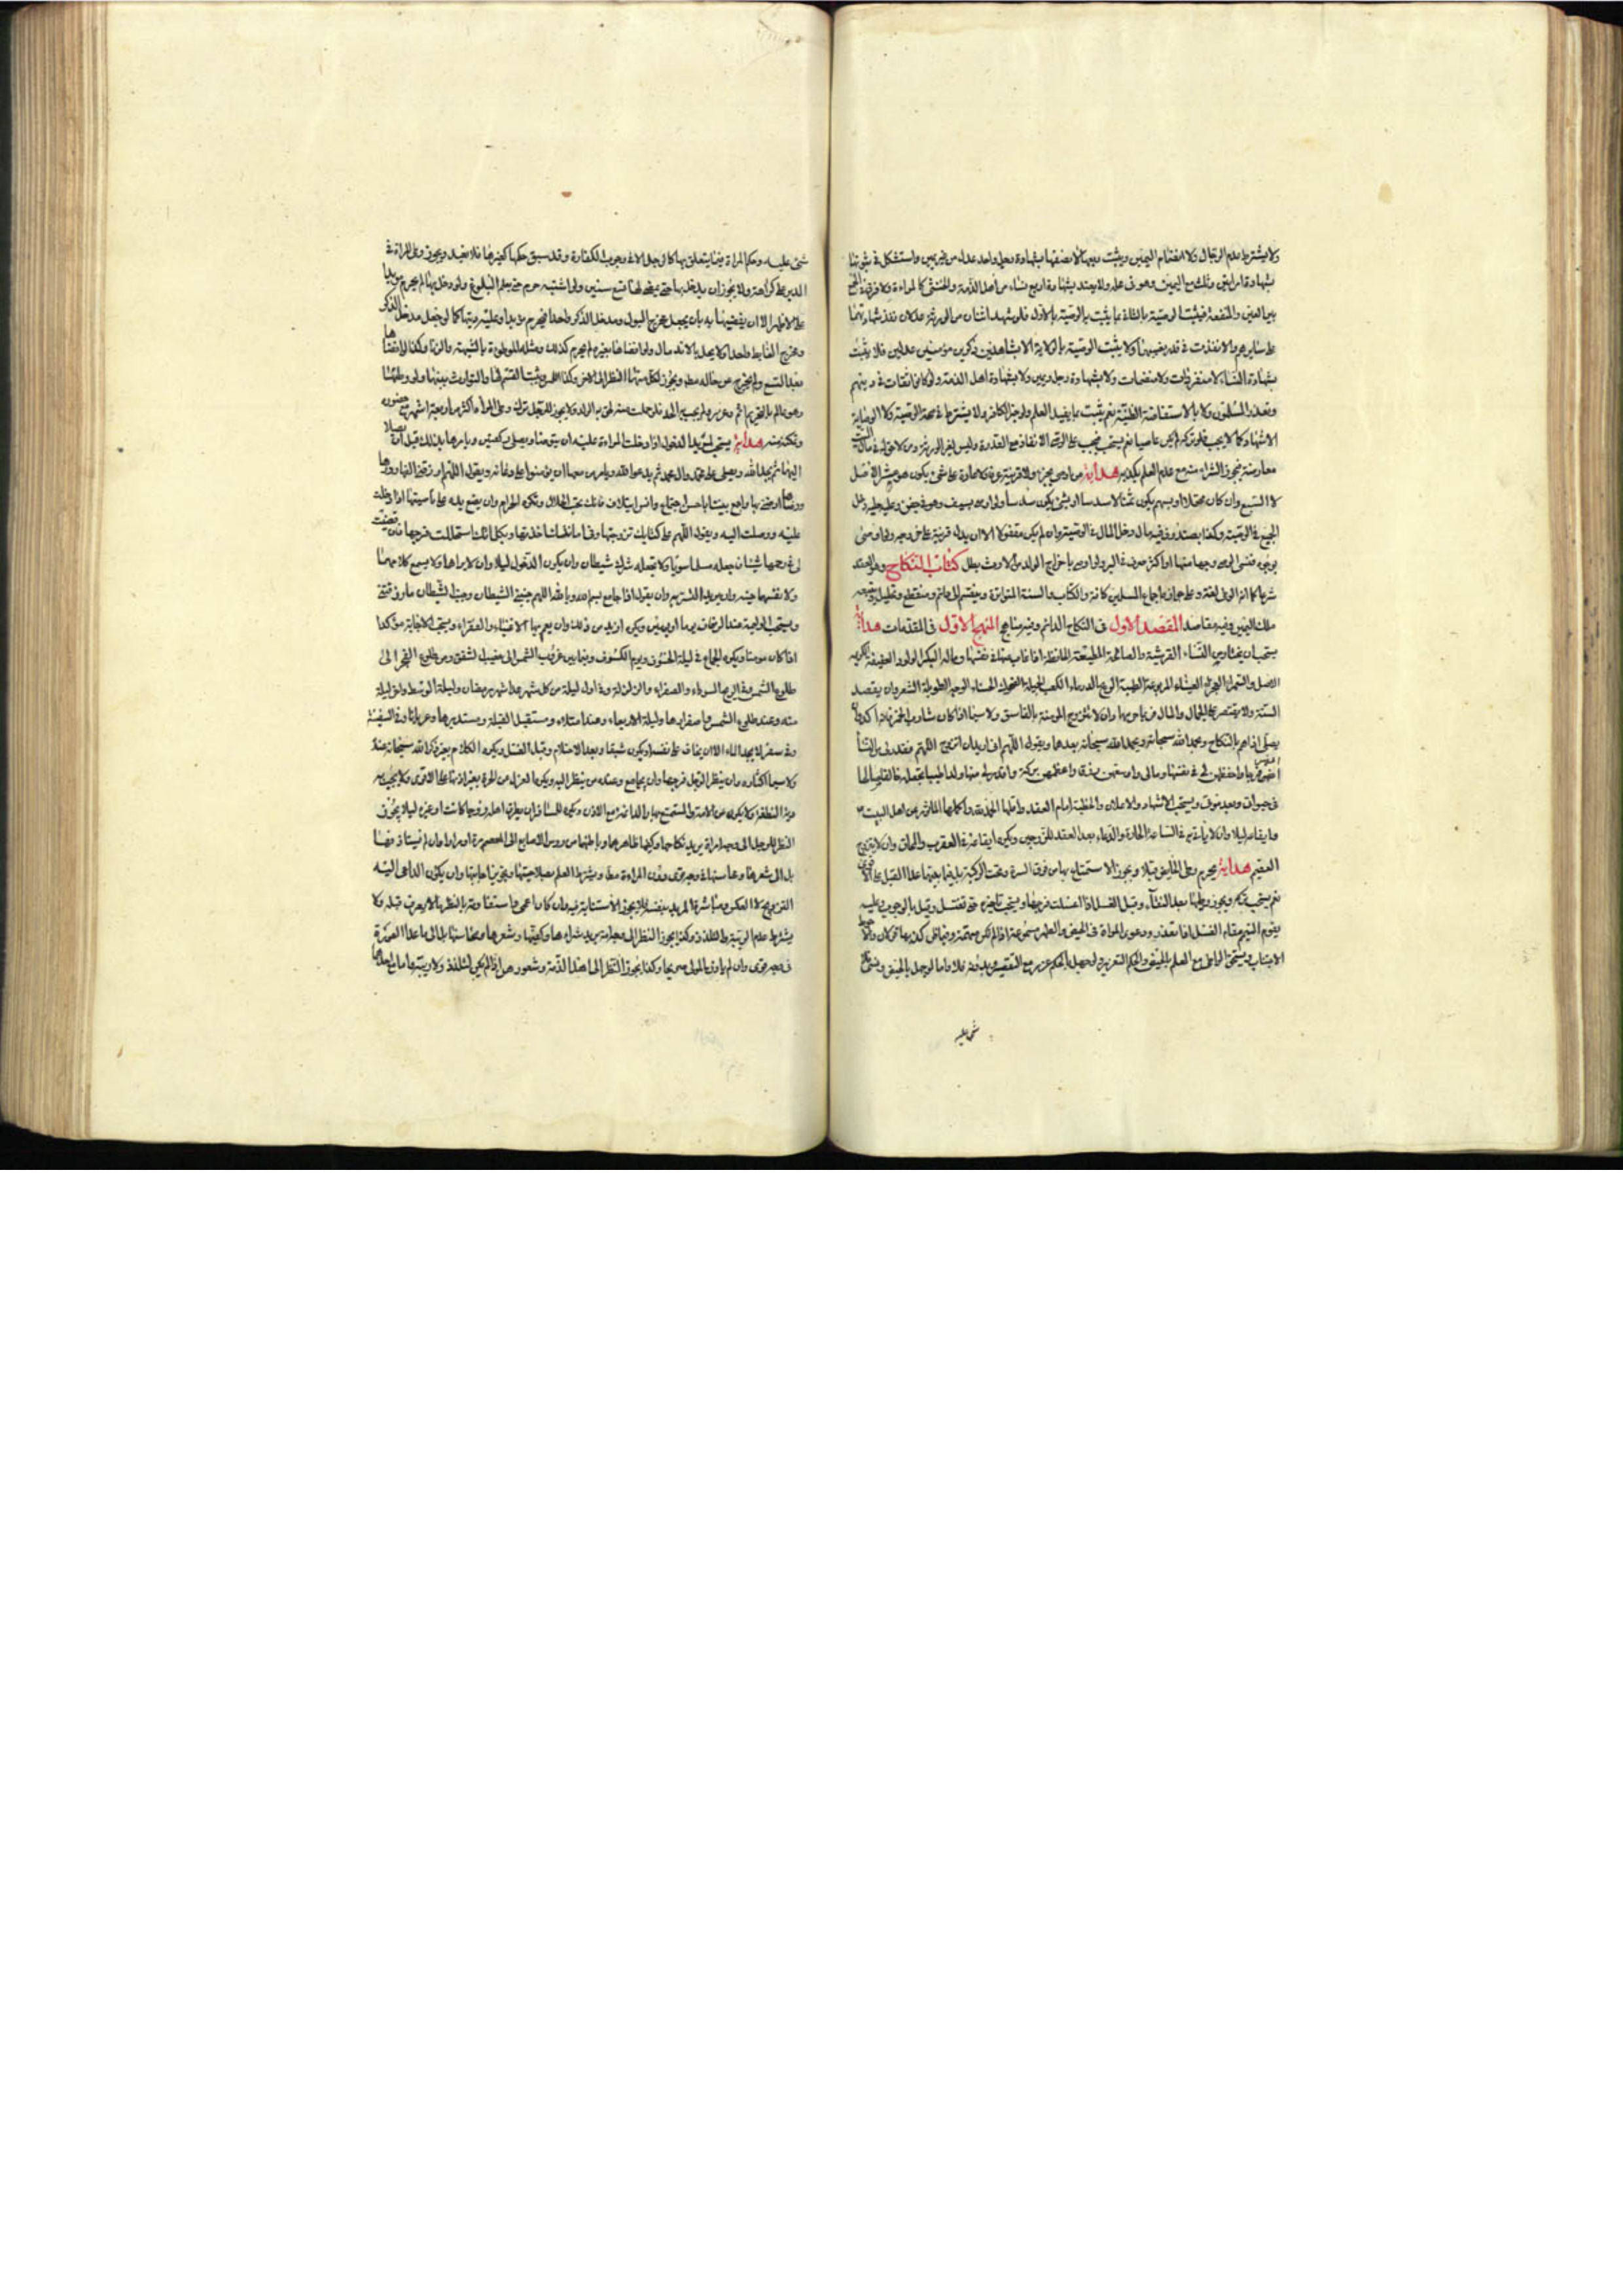 ولا يشترط عدم الرجال ولا انضمام اليمين ويثبت ربعها لا نصفها بشهادة رجل واحد عدل من غير يمين واستشكل في ثبوتها
بشهادة امرأتين وثلث مع اليمين وهو في محله ولا يعتد بشهادة أربع نساء من أهل الذمة والخنثى كالمراءة ولا فرق في
بين العين والمنفعة فيثبت الوصية بالثلاثة بما يثبت به الوصية بالأول فلو شهد اثنان من الورثة عدلان نفذ شهادتهما
على سايرهم والا نفذت في قدر نصيبهما ولا يثبت الوصية بالولاية الا بشاهدين ذكرين مؤمنين عدلين فلا يثبت
بشهادة النساء لا منفردات ولا منضمات ولا بشهادة رجل ويمين ولا بشهادة اهل الذمة ولو كانوا ثقات في دينهم
وتعذر المسلمون ولا بالاستفاضة الظنية نعم يثبت بما يفيد العلم ولو خبر الكافر ولا يشترط في صحة الوصية ولا الوصاية
الاشهاد كما لا يجب فلو تركه لم يكن عاصيا نعم يستحب
معارضته بتجوز الشراء منه مع عدم العلم بكذبه هداية من اوصى بجزء ولا قرينة
لا السبع وان كان محتملا او بسهم يكون ثمنا لا سدسا او بشئ يكون سدسا ولو اوصى بسيف وهو في جفن وعليه حلية دخل
الجميع في الوصية وكذا بصندوق فيه مال دخل المال في الوصية وان لم يكن مقفولا الا ان يدل قرينة على
بوجوه فنسى الوصي وجها منها او اكثر صرف في البر ولو اوصى باخراج الولد من الارث بطل كتاب النكاح وهو العقد
شرعا كما انه الوطى لغة وعلى جوازه اجماع المسلمين كافة والكتاب والسنة المتواترة وينقسم الى دائم ومنقطع وتحليل
ملك اليمين وفيه مقاصد المقصد الاول في النكاح الدائم وفيه مناهج المنهج الاول في المقدمات هداية
يستحب ان يختار من النساء القرشية والصالحة المطيعة الحافظة اذا غاب عنها في نفسها وماله البكر الولود العفيفة الكريمة
الاصل والسمراء العجزاء العيناء المربوعة الطيبة الريح الدرماء الكعب الجميلة الضحوك الحسناء الوجه الطويلة الشعر وان يقصد
السنة ولا يقتصر على الجمال والمال فربما حرمهما وان لا تتزوج المؤمنة بالفاسق ولا سيما اذا كان شارب الخمر
يصلي اذا هم بالنكاح ويحمد الله سبحانه بعدها ويقول اللهم اني اريد ان اتزوج اللهم فقدر لي من النساء
فرجا واحفظهن لي في نفسها ومالي واوسعهن رزقا واعظمهن بركة واقدر لي منها ولدا طيبا تجعله خلفا صالحا
في حيوتي وبعد موتي ويستحب الاشهاد والاعلان والخطبة امام العقد واقلها الحمد لله واكملها الماثورة عن اهل البيت
وايقاعه ليلا وان لا يأتيه في الساعة الحارة والدعاء بعد العقد للزوجين ويكره ايقاعه في العقرب والمحاق وان لا يتزوج
العقيم هداية يحرم وطى الحايض قبلا ويجوز الاستمتاع بها من فوق السرة وتحت الركبة
نعم يستحب تركه ويجوز وطئها بعد النقاء وقبل الغسل اذا غسلت فرجها ويستحب تاخيره حتى تغتسل وقيل بالوجوب
يقوم التيمم مقام الغسل اذا تعذر ودعوى المراة في الحيض والطهر مسموعة اذا لم تكن متهمة
الاجتناب ويستحق الواطى مع العلم بالحيض والحكم التعزير ولو جهل بالحكم عزر مع التقصير
شئ عليه
شئ عليه وحكم المراة فيما يتعلق بها كالرجل الا في وجوب الكفارة وقد سبق حكمها كغيرها فلا نعيد ويجوز وطى المراة في
الدبر على كراهة ولا يجوز ان يدخل بها حتى يمضي لها تسع سنين ولو اشتبه حرم حتى يعلم البلوغ ولو دخل بها لم يحرم مؤبدا
على الاظهر الا ان يفضيها به بان يجعل مخرج البول ومدخل الذكر واحدا فيحرم مؤبدا وعليه ديتها كما لو جعل مدخل الذكر
ومخرج الغايط واحدا ولا يحل بالاندمال ولو افضاها بغيره لم يحرم كذلك ومثله الموطوءة بالشبهة والزنا وكذا لو افضاها
بعد التسع ولم يخرج من حباله
وهو عالم بالتحريم اثم وعزر ولم يجب الحد فلو حملت منه لحق به الولد ولا يجوز للرجل ترك وطى المراة اكثر من اربعة اشهر مع حضوره
وتمكنه منه هداية يستحب لمريد الدخول اذا دخلت المراءة عليه ان يتوضا ويصلي ركعتين ويامرها بذلك قبل
اليها ثم يحمد الله ويصلي على محمد وال محمد ثم يدعو الله ويامر من معها ان يؤمنوا على دعائه ويقول اللهم ارزقني الفها وودها
ورضاها وارضني بها واجمع بيننا باحسن اجتماع وانس ايتلاف فانك تحب الحلال وتكره الحرام وان يضع يده على ناصيتها اذا دخلت
عليه ووصلت اليه ويقول اللهم على كتابك تزوجتها وفي امانتك اخذتها وبكلماتك استحللت فرجها فان قضيت
لي في رحمها شيئا فاجعله مسلما سويا ولا تجعله شرك شيطان وان يكون الدخول ليلا وان لا يراهما ولا يسمع كلامهما
ولا نفسهما حينه وان يقول اذا جامع بسم الله وبالله اللهم جنبني الشيطان وجنب الشيطان ما رزقتني
ويستحب الوليمة عند الزفاف يوما او يومين ويكره ازيد من ذلك وان يعم بها الاغنياء والفقراء ويستحب الاجابة مؤكدا
اذا كان مومنا ويكره الجماع في ليلة الخسوف ويوم الكسوف وفيما بين غروب الشمس الى مغيب الشفق ومن طلوع الفجر الى
طلوع الشمس وفي الريح السوداء والصفراء والزلزلة وفي اول ليلة من كل شهر عدا شهر رمضان وليلة الوسط واخر ليلة
منه وعند طلوع الشمس واصفرارها وليلة الاربعاء وعند امتلاء ومستقبل القبلة ومستدبرها وعريانا وفي السفينة
وفي سفر لا يجد الماء الا ان يخاف على نفسه او يكون شبقا وبعد الاحتلام وقبل الغسل ويكره الكلام بغير ذكر الله سبحانه عنده
ولا سيما اكثاره وان ينظر الرجل فرجها وان يجامع وعنده من ينظر اليه ويكره العزل عن الحرة بغير اذنها على الاقوى ولا يجب به
دية النطفة ولا يكره عن الامة والمتمتع بها والدائمة مع الاذن ويكره للمسافر ان يطرق اهله زوجا كانت او غيره ليلا يجوز
النظر للرجل الى وجه امراة يريد نكاحها وكفيها ظاهرهما وباطنهما من رؤس الاصابع الى المعصم مرة او مرارا وان لم يستاذنها
بل الى شعرها ومحاسنها في وجه قوي وفي المراءة مطلقا ويشترط العلم بصلاحيتها وتجويز اجابتها وان يكون الداعي اليه
التزويج لا العكس ومباشرة المريد بنفسه فلا يجوز الاستنابة فيه وان كان اعمى
يشترط عدم الريبة والتلذذ وكذا يجوز النظر الى وجه امة يريد شراءها وكفيها وشعرها ومحاسنها بل الى ما عدا العورة
في وجه قوي وان لم ياذن المولى صريحا وكذا يجوز النظر الى اهل الذمة وشعورهن اذا لم يكن لتلذذ ولا ريبة